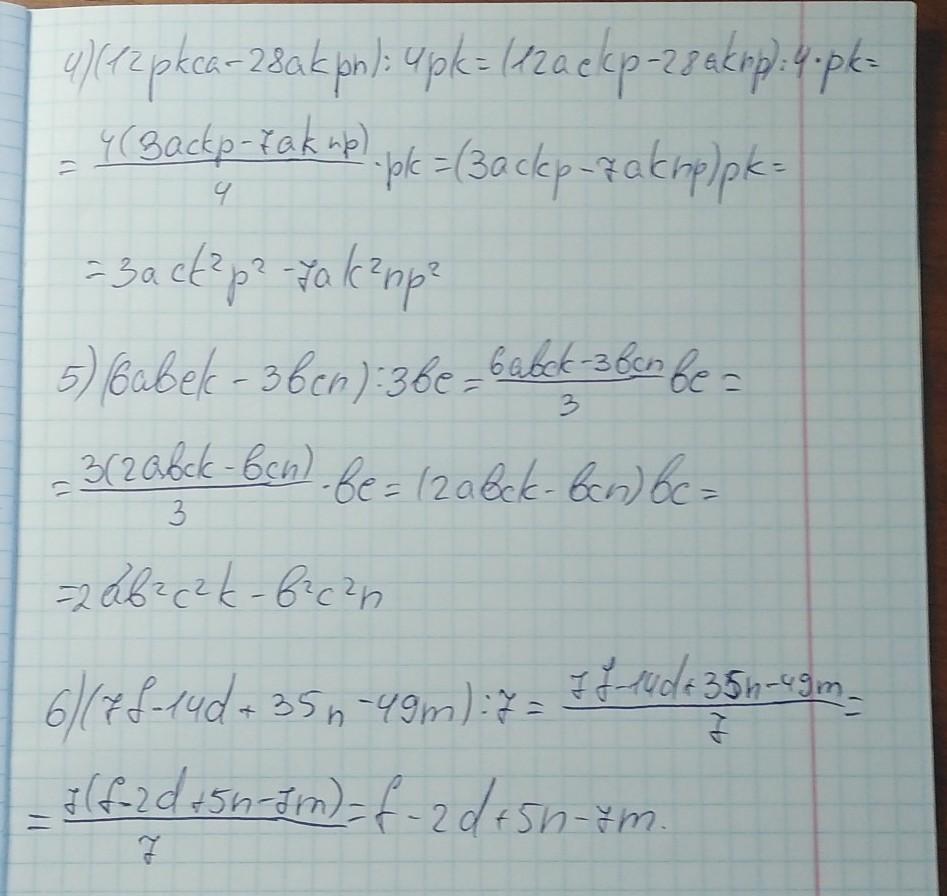 4) (12pkca - 28akpn) : 4pk = (12ackp - 28aknp) : 4 · pk =
= 4(3ackp - 7aknp) / 4 · pk = (3ackp - 7aknp)pk =
= 3ack²p² - 7ak²np²
5) (6авck - 3вcn) : 3вc = 6авck - 3вcn / 3 вc =
= 3(2авck - вcn) / 3 · вc = (2авck - вcn)вc =
= 2ав²c²k - в²c²n
6) (7f - 14d + 35n - 49m) : 7 = 7f - 14d + 35n - 49m / 7 =
= 7(f - 2d + 5n - 7m) / 7 = f - 2d + 5n - 7m.